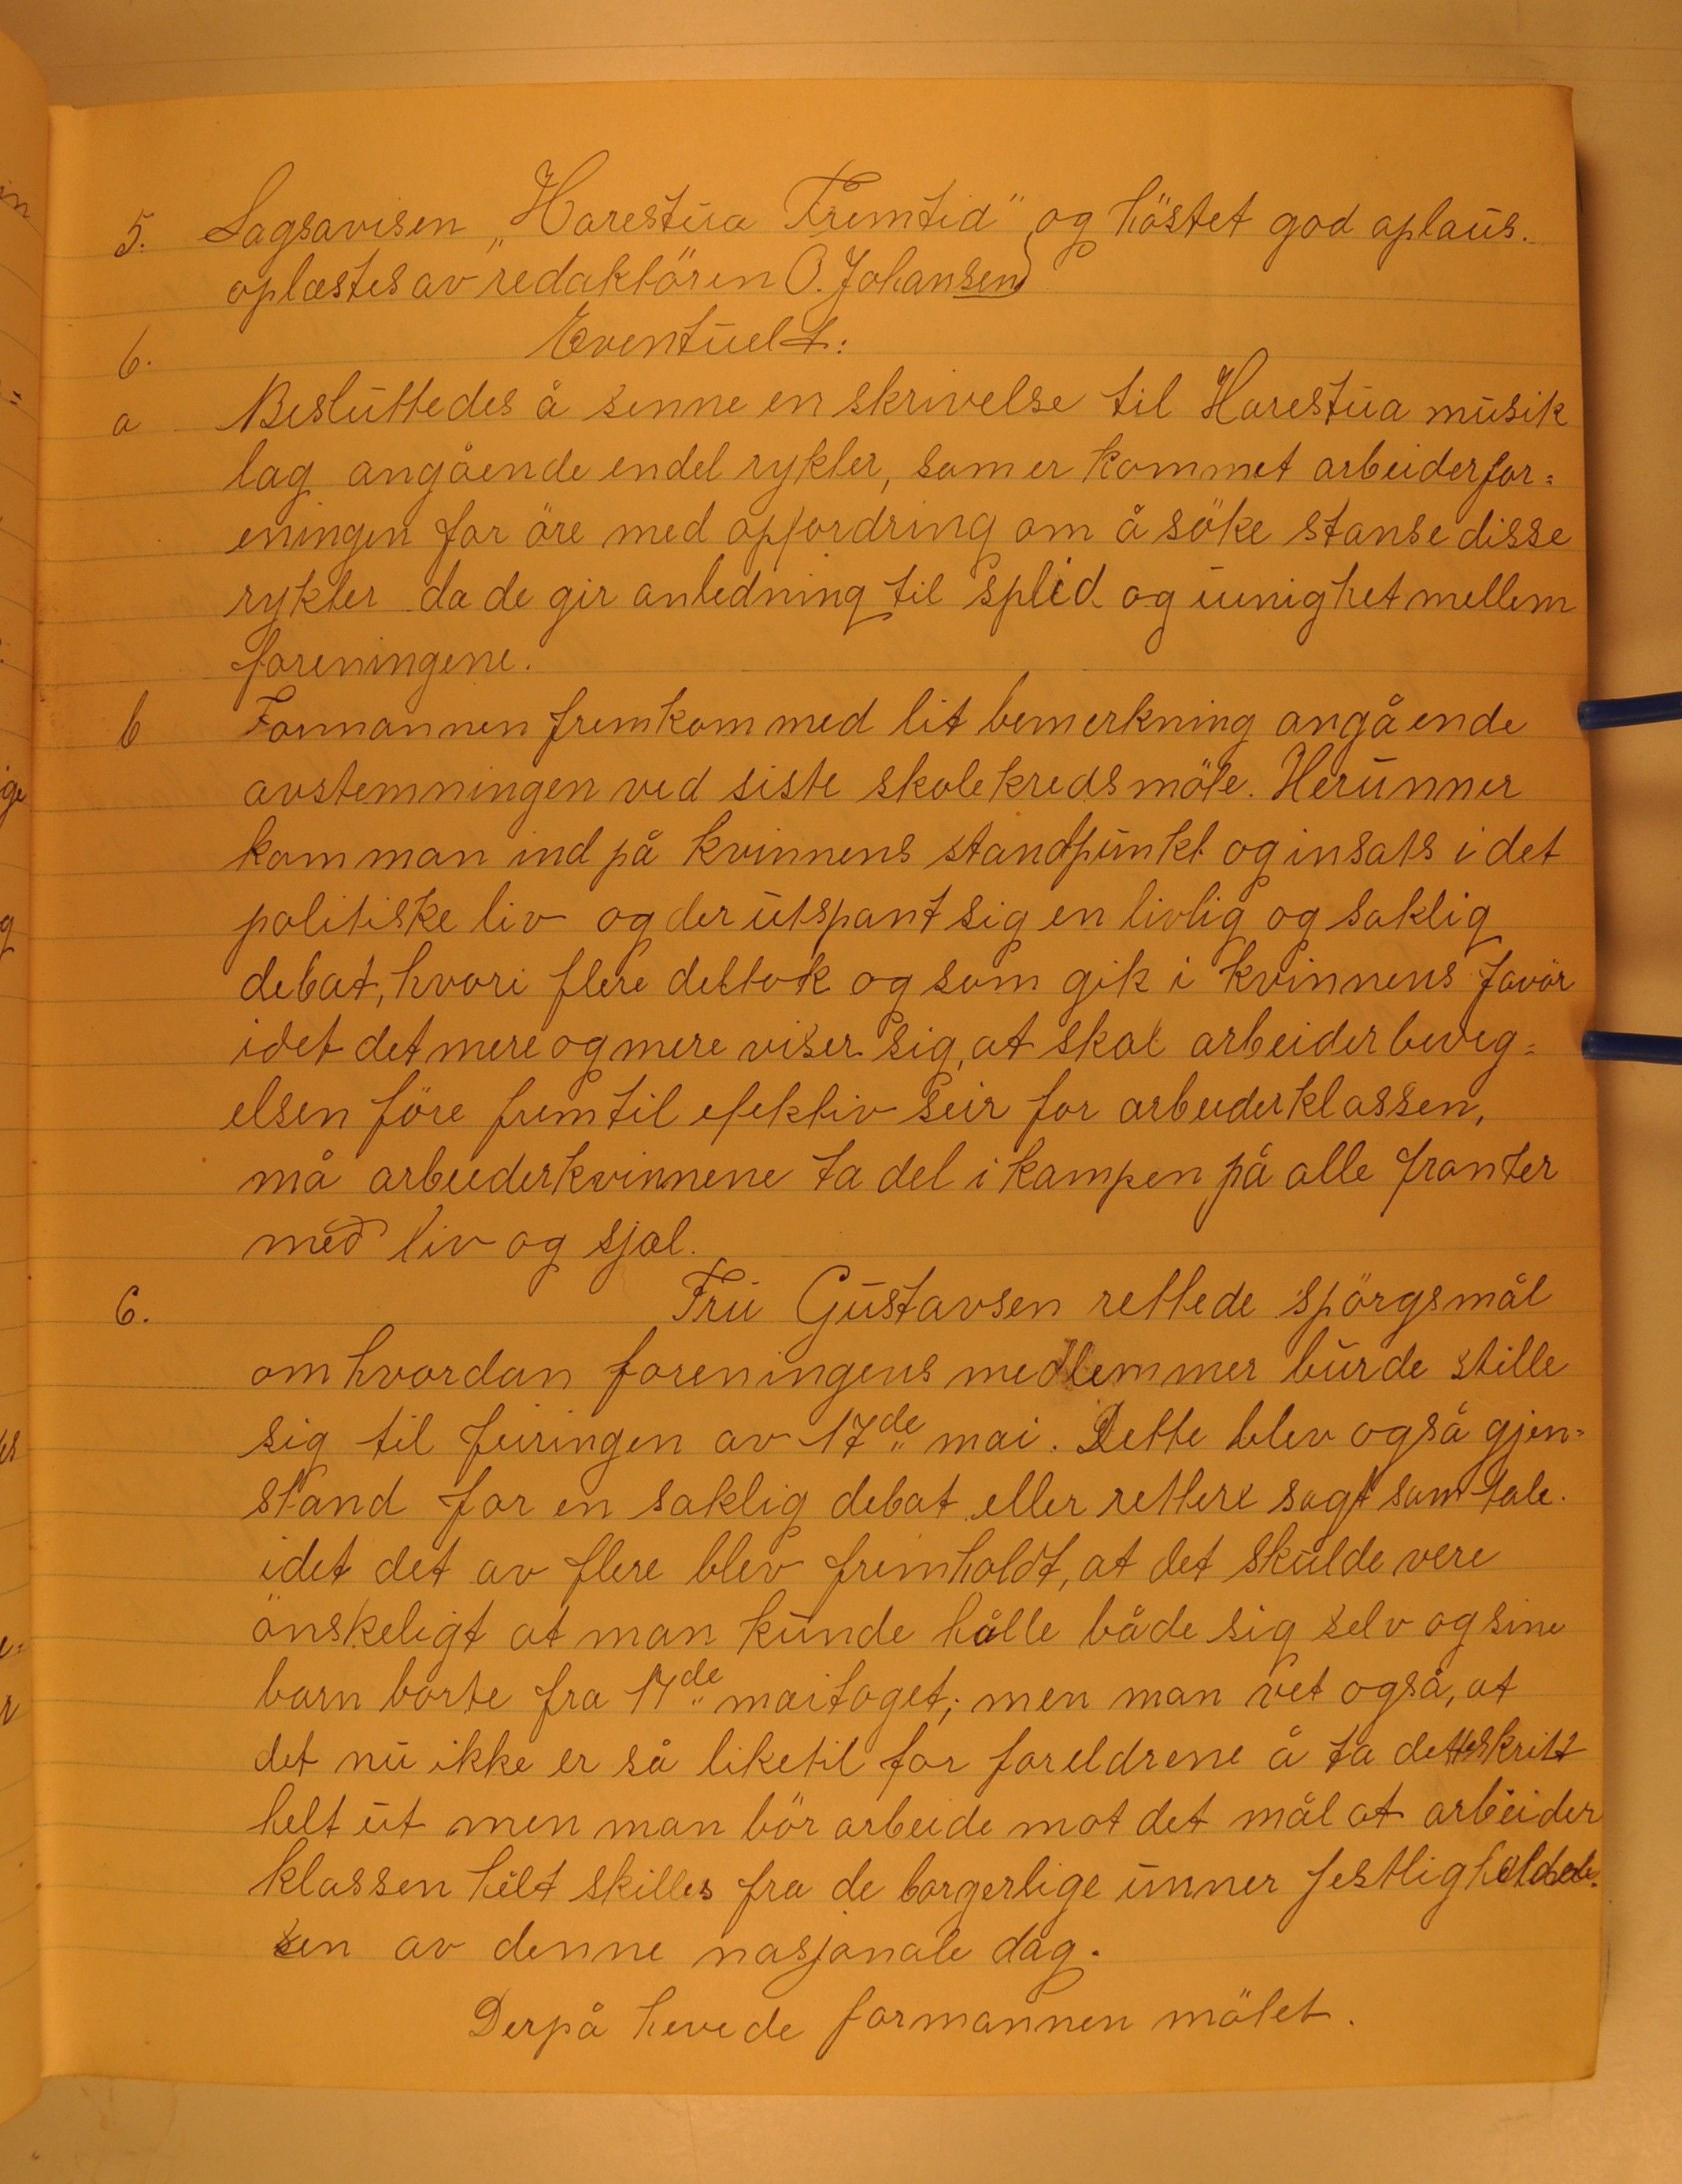 5. Lagsavisen „Harestua Fremtid" og höstet god aplaus.
oplæstes av redaktören O. Johansen
6. Eventuelt:
a Besluttedes å senne en skrivelse til Harestua musik
lag angående endel rykter, som er kommet arbeiderfor=
eningen for öre med opfordring om å söke stanse disse
rykter da de gir anledning til splid og uenighet mellem
foreningene.
b Formannen fremkom med lit bemerkning angående
avstemningen ved siste skolekredsmöte. Herunner
kom man ind på kvinnens standpunkt og insats i det
politiske liv og der utspant sig en livlig og saklig
debat, hvori flere deltok og som gik i kvinnens favör
idet det mere og mere viser sig, at skal arbeiderbeveg=
elsen före frem til efektiv seir for arbeiderklassen,
må arbeiderkvinnene ta del i kampen på alle fronter
med liv og sjæl.
C. Fru Gustavsen rettede spörgsmål
om hvordan foreningens medlemmer burde stille
sig til feiringen av 17de mai. Dette blev også gjen=
stand for en saklig debat eller rettere sagt samtale.
idet det av flere blev fremholdt, at det skulde vere
önskeligt at man kunde hålle både sig selv og sine
barn borte fra 17de maitoget; men man vet også, at
det nu ikke er så liketil for foreldrene å ta dette skritt
helt ut men man bör arbeide mot det mål at arbeider
klassen helt skilles fra de borgerlige unner festlighold
sen av denne nasjonale dag.
Derpå hevede formannen mötet.